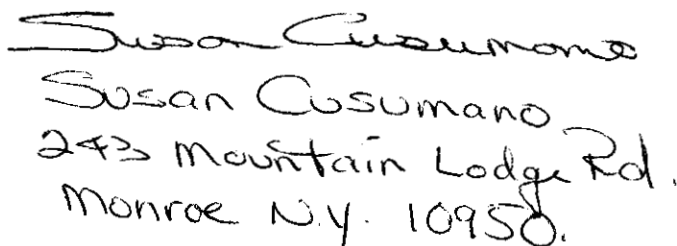 Susan Cusumano
Susan Cusumano
243 Mountain Lodge Rd.
Monroe N.Y. 10950.